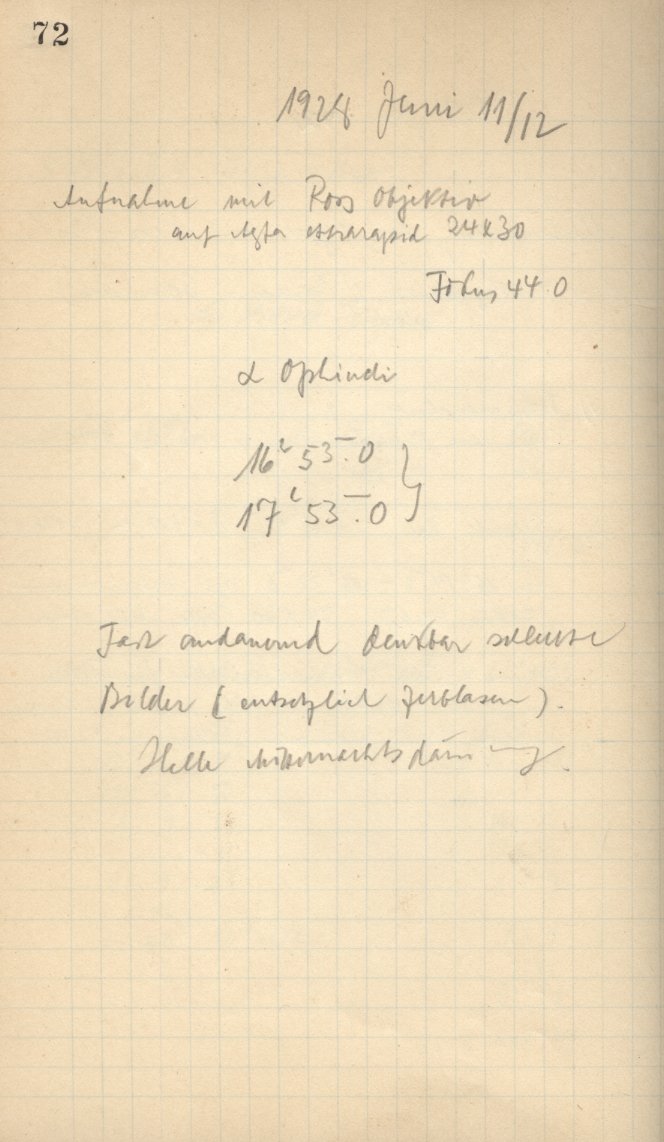 72
1928 Juni 11/12
Aufnahme mit Ross Objektiv
auf Agfa extrarapid 24x30
Fokus 44.0
α Ophiuchi
16ʰ 53ᵐ.0 }
17ʰ 53ᵐ.0
Fast andauernd denkbar schlechte
Bilder (entsetzlich zerblasen).
Helle Mitternachtsdämmerung.